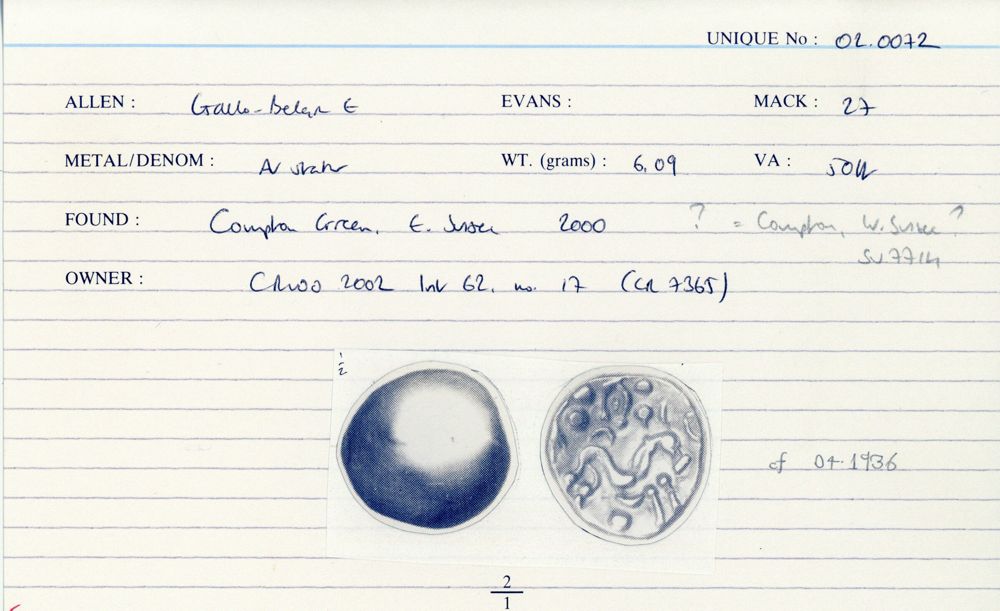 UNIQUE No : 02.0072
ALLEN : Gallo-Belgic E EVANS : MACK : 27
METAL/DENOM : AV stater WT. (grams) : 6.09 VA :
FOUND : Compton Green, E. Sussex 2000 ? = Compton, W. Sussex?
SU 7714
OWNER : CR100 2002 Inv 62, no. 17 (CR 7365)
1/2
cf 04.1936
2
1